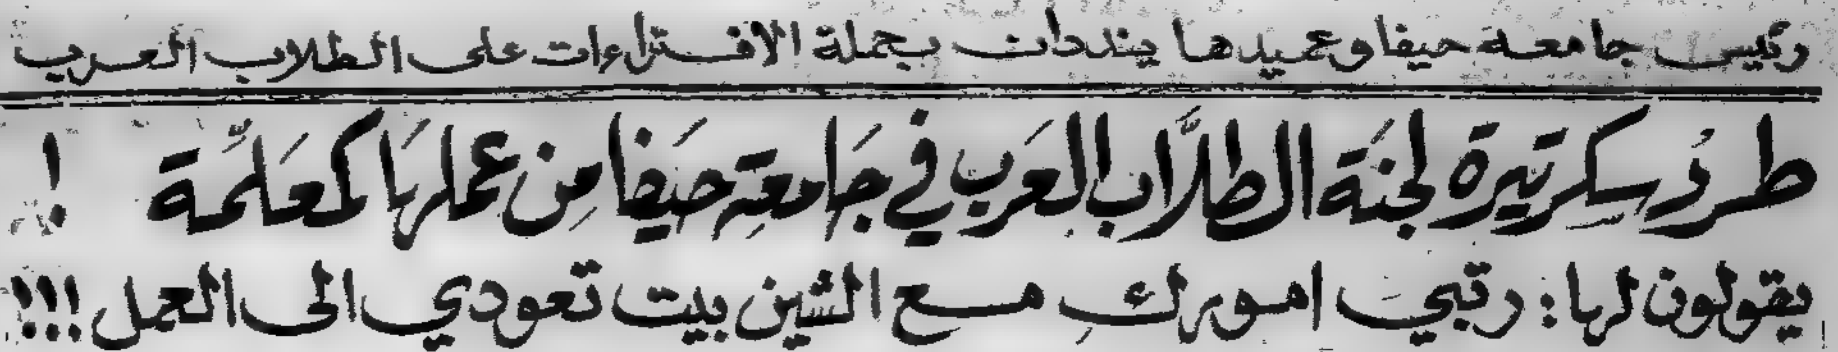 رئيس جامعة حيفا وعميدها ينددان بحملة الافتراءات على الطلاب العرب
طرد سكرتيرة لجنة الطلاب العرب في جامعة حيفا من عملها كمعلمة !
يقولون لها: رتبي امورك مع الشين بيت تعودي الى العمل !!!